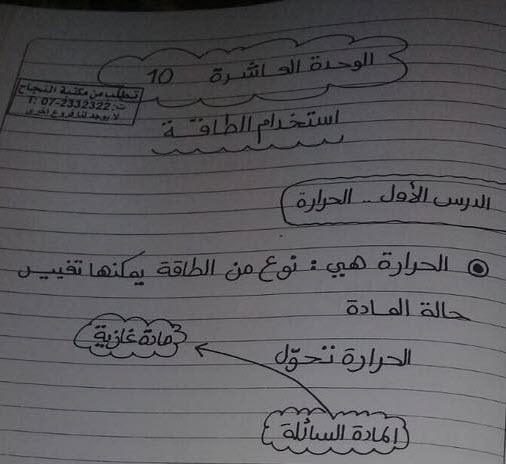 الوحدة العاشرة 10
تطلب من مكتبة النجاح
ت: 07-2332322 :T
لا يوجد لنا فروع اخرى
استخدام الطاقة
الدرس الأول .. الحرارة
الحرارة هي : نوع من الطاقة يمكنها تغيير
حالة المادة
مادة غازية
الحرارة تتحوّل
المادة السائلة